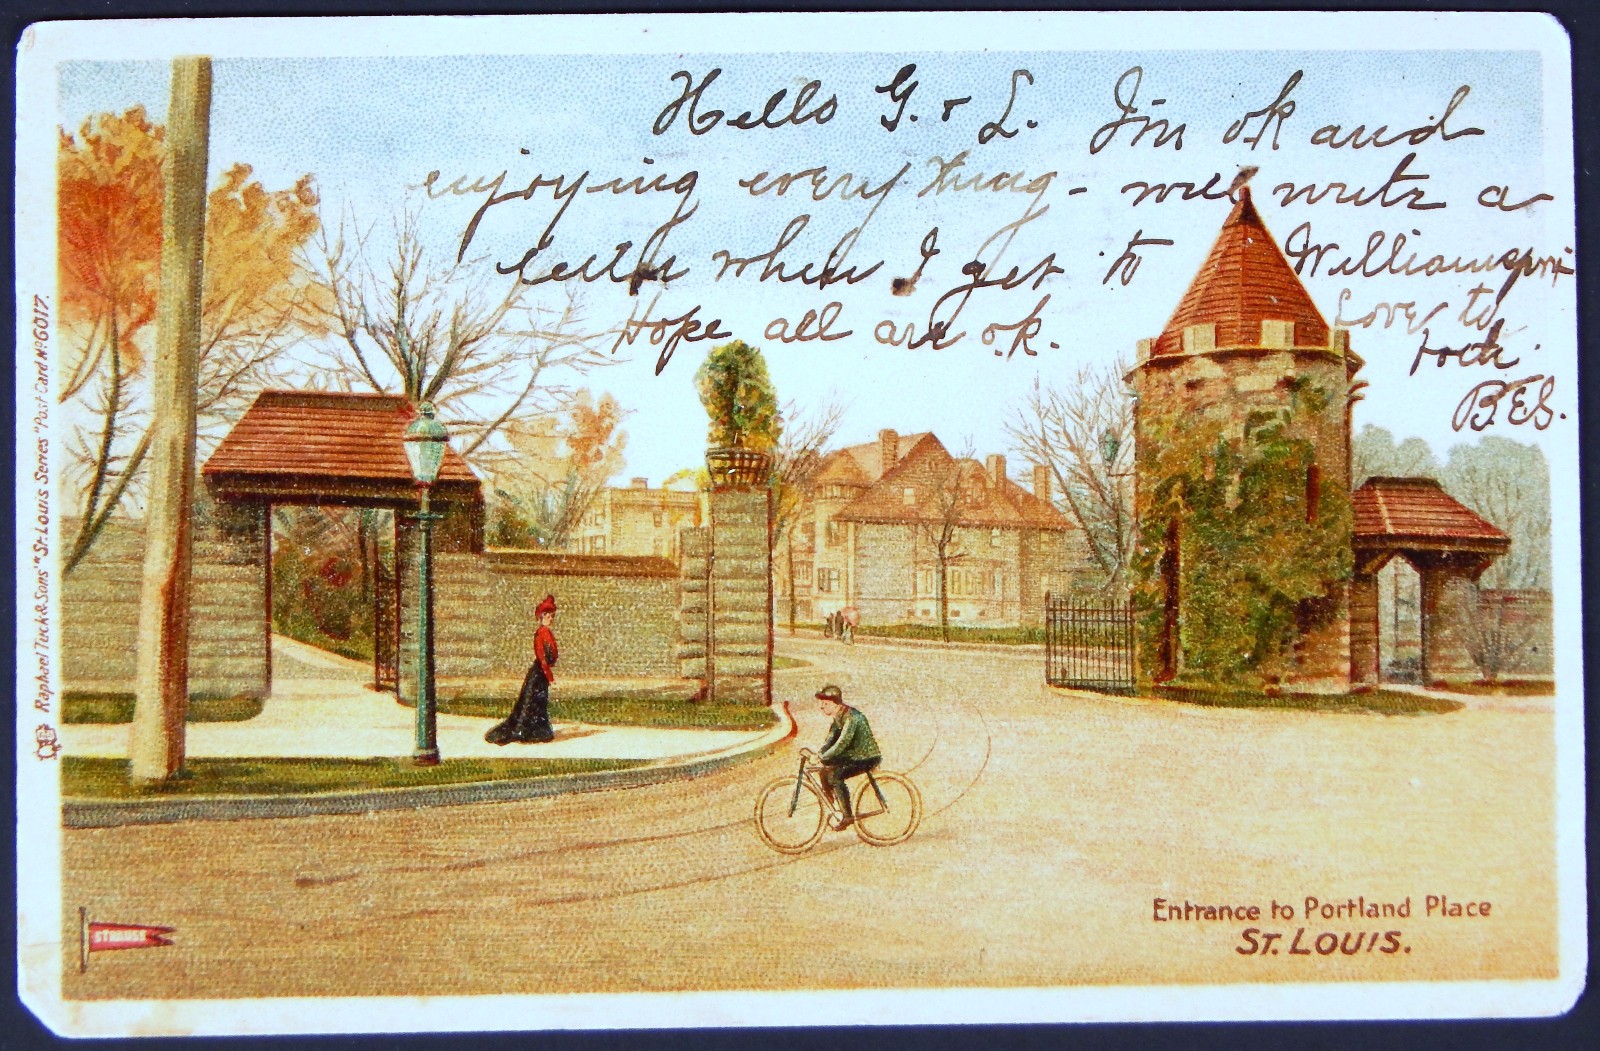 Hello G. & L. I'm ok and
enjoying every thing - will write a
letter when I get to Williamsport
Hope all are o.k. Love to
B.E.S.
Raphael Tuck & Sons' "St. Louis Series" Post Card No 6017.
STRAUSS
Entrance to Portland Place
ST. LOUIS.